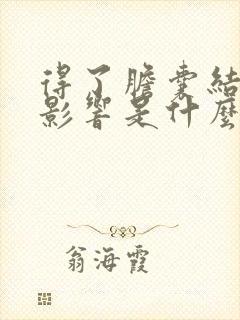 得了膽囊結
影響是什麼
翁海霞